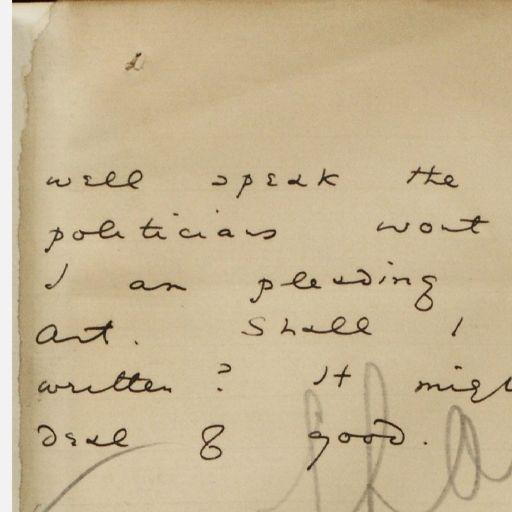 2
well speak the
politicians wont
I am pleading
art. Shall I
written? It
deal of good.